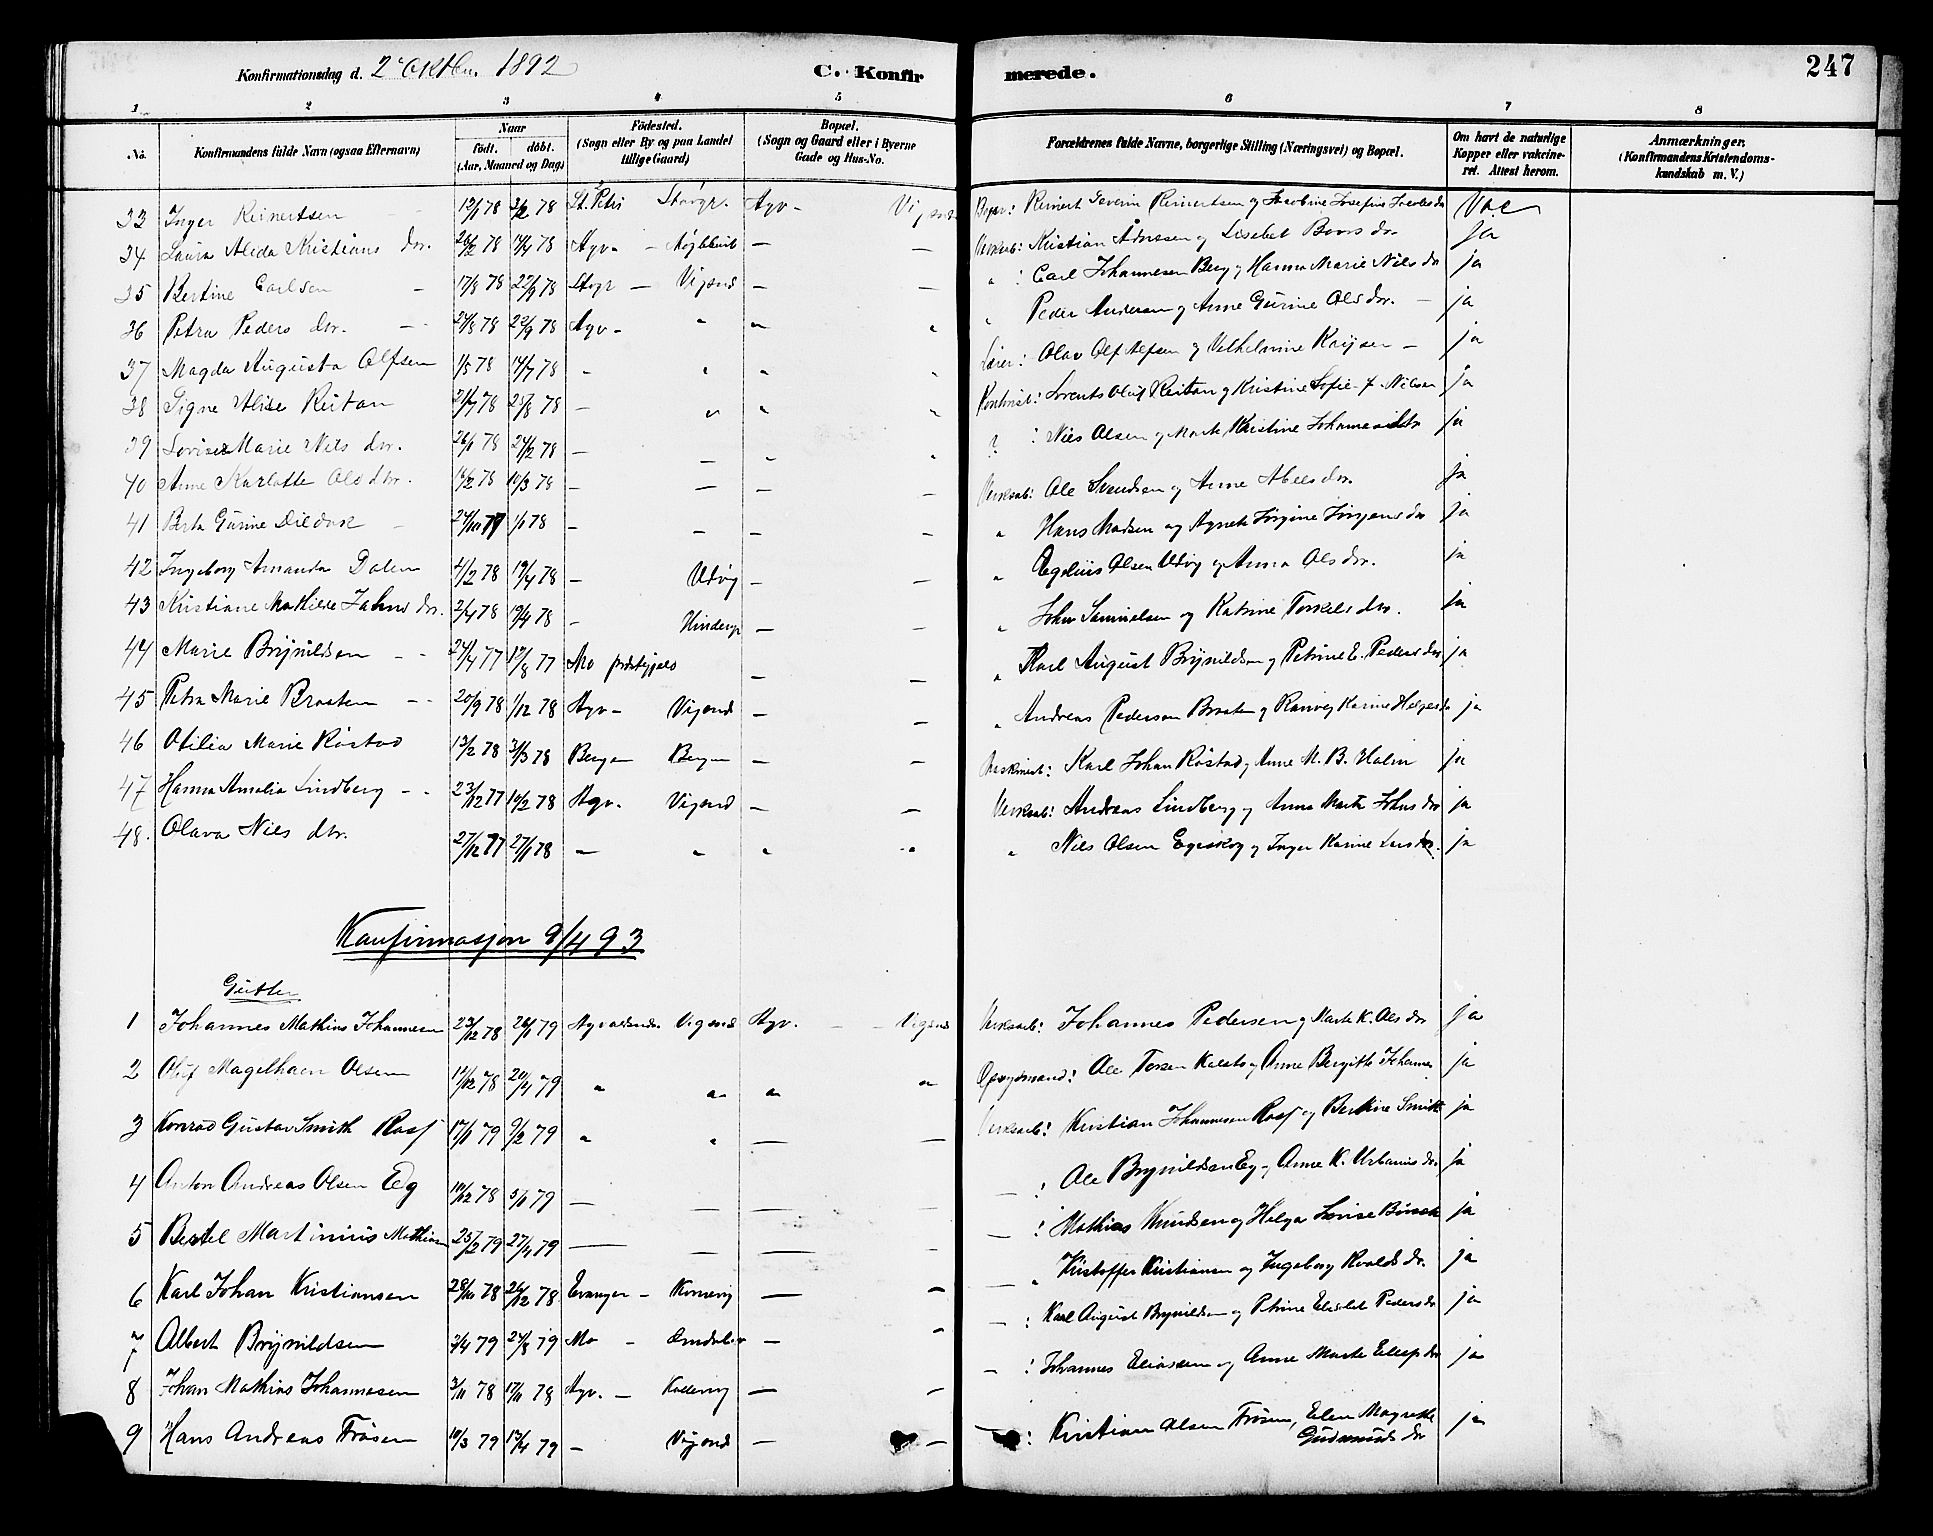 Konfirmationsdag d. 2 Oktbr. 1892 C. Konfirmerede. 247
1 2 3 4 5 6 7 8
No. Konfirmandens fulde Navn (ogsaa Efternavn) Naar födt. döbt. (Aar, Maaned og Dag) Födested. (Sogn eller By og paa Landet tillige Gaard) Bopæl. (Sogn og Gaard eller i Byerne Gade og Hus-No. Forældrenes fulde Navne, borgerlige Stilling (Næringsvei) og Bopæl. Om havt de naturlige Kopper eller vakcineret. Attest herom. Anmærkninger. (Konfirmandens Kristendomskundskab m. V.)
33 Inger Reinertsen 12/1 78 3/2 78 St. Petri Reinert Severin Reinertsen og Vac
34 Laura Alida Kristians dtr. 26/2 78 14/4 78 Agv. — — Kristian Adnesen og Lisebet Boors dtr. Ja
35 Bertine Carlsen 17/8 78 22/9 78 Vigsnes — — " : Carl Johannesen Berg og Hanna Marie Nils dtr ja
36 Petra Peders dtr. 24/8 78 22/9 78 Agv. " " Peder Andersen og Anne Gurine Ols dtr. ja
37 Magda Augusta Olfsen 1/5 78 14/7 78 — " " Lærer: Olav Olf Alfsen og Vilhelmine Kaijser ja
38 Signe Alise Reitan 21/7 78 25/8 78 — " " Lorents Oluf Reitan og Kristine Sofie f. Nilsen ja
39 Lovise Marie Nils dtr. 26/1 78 24/2 78 — — " ? : Niels Olsen og Marte Kristine Johannesdtr ja
40 Anne Karlotte Ols dtr. 14/2 78 10/3 78 — — — Verksarb: Ole Svendsen og Anne Abels dtr. ja
41 Berta Gurine 24/11 77 1/1 78 — — — " Hans Madsen og Agnete Jørgine Jørgens dtr ja
42 Ingeborg Amanda Dalen 4/2 78 19/4 78 — Udvig — — " Olsen Udvig og Anna Ols dtr. ja
43 Kristiane Mathilde Johns dtr. 2/4 78 19/4 78 — — — " John Samuelsen og Katrine Torkels dtr. ja
44 Marie Brynildsen 24/4 77 12/8 77 Mo — — " Karl August Brynildsen og Petrine E. Peders dtr ja
45 Petra Marie Braaten 20/9 78 1/12 78 Agv. Vigsnes — — " Andreas Pedersen Braaten og Ranveg Karine ja
46 Otilia Marie Røstad 13/2 78 31/3 78 Bergen Bergen — — Maskinist: Karl Johan Røstad og Anne M. B. Holm ja
47 Hanna Amalia Lindberg 23/12 77 10/2 78 Agv. Vigsnes — — Verksarb: Andreas Lindberg og Anna Marta Johns dtr ja
48. Olava Nils dtr. 27/12 77 27/1 78 — " " " " Nils Olsen Egeskog og Inger Karine Lars dtr. ja
Konfirmasjon 9/4 93
Gutter
1 Johannes Mathias Johannesen 23/12 78 26/1 79 Agvaldsnes Vigsnes Agv. Vigsnes Verksarb: Johannes Pedersen og Marte K. Ols dtr ja
2 Oluf Magelhaen Olsen 11/12 78 20/4 79 " " " " Opsynsmand: Ole Torsen og Anne Bergitte Johannes ja
3 Konrad Gustav Smith Rasf 17/1 79 9/2 79 " " — — Verksarb: Kristian Johannesen Rasf og Bertine Smith ja
4 Anton Andreas Olsen Eg 10/12 78 5/1 79 — — — — — : Ole Brynildsen Eg og Anne K. Urbanus dtr. ja
5 Bertel Martinius Mathiasen 25/2 79 27/4 79 — — — — — : Mathias Knudsen og Helga Lovise ja
6 Karl Johan Kristiansen 28/10 78 26/12 78 — " — " Kristoffer Kristiansen og Ingeborg Roalds dtr. ja
7 Albert Brynildsen 2/4 79 24/8 79 Mo — — — : Karl August Brynildsen og Petrine Elisbet Peders dtr ja
8 Johan Mathias Johannesen 3/11 78 17/11 78 Agv. — — — : Johannes Eliassen og Anne Marte dtr ja
9 Hans Andreas Frøsen 10/3 79 13/4 79 — Vigsnes — — — : Kristian Olsen Frøsen, Elen Magrethe
Gudmunds dtr ja